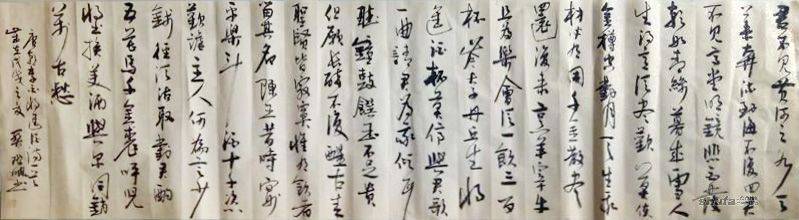 君不見黃河之水天
上來奔流到海不復回君
不見高堂明鏡悲白髮
朝如青絲暮成雪人
生得意須盡歡莫使
金樽空對月天生我
材必有用千金散盡
還復來烹羊宰牛
且為樂會須一飲三百
杯岑夫子丹丘生將
進酒杯莫停與君歌
一曲請君為我傾耳
聽鐘鼓饌玉不足貴
但願長醉不復醒古來
聖賢皆寂寞惟有飲者
留其名陳王昔時宴
平樂斗酒十千恣
歡謔主人何為言少
錢徑須沽取對君酌
五花馬千金裘呼兒
將出換美酒與爾同銷
萬古愁
李白將進酒詩一首
歲在戊戌之夏